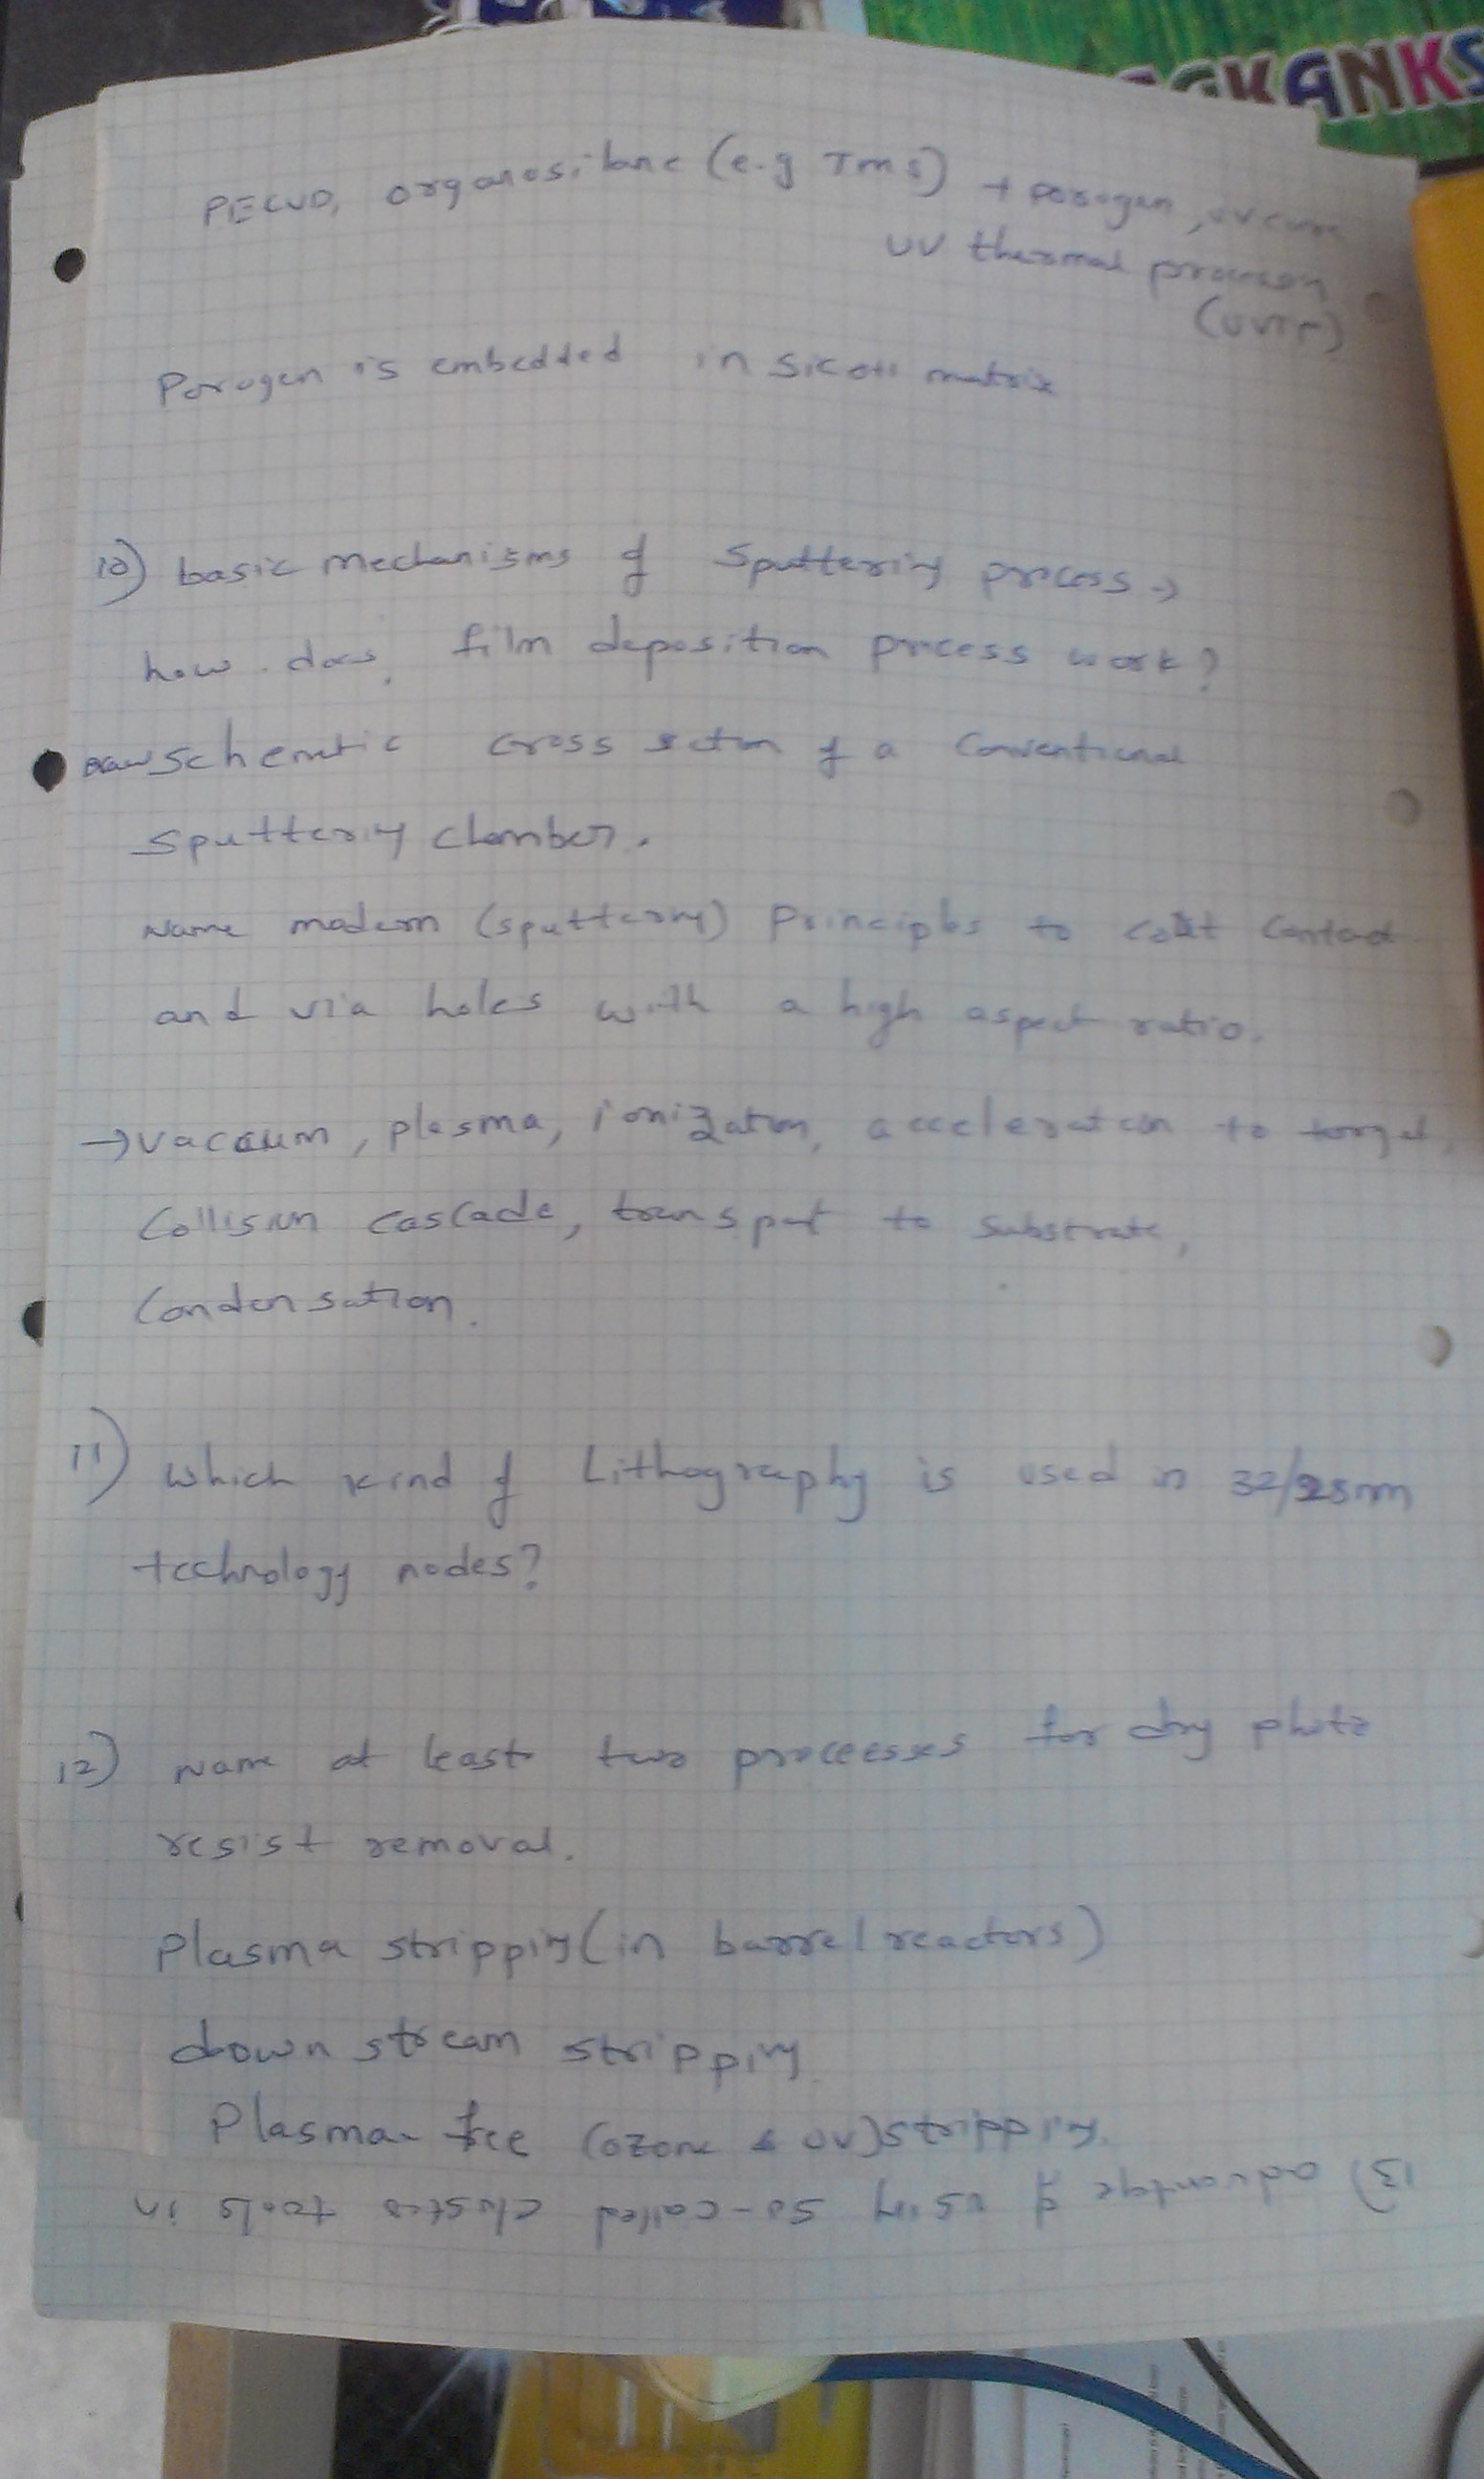 PECVD, organosilane (e.g TMS) + porogen, UV cure
UV thermal processing
(UVTP)
Porogen is embedded in SiCOH matrix
10) basic mechanisms of Sputtering process ->
how does film deposition process work?
Draw Schematic cross section of a Conventional
Sputtering chamber.
Name modern (sputtering) principles to coat contact
and via holes with a high aspect ratio.
→ vaccuum, plasma, ionization, acceleration to target,
Collision cascade, transport to substrate,
Condensation.
11) which kind of Lithography is used in 32/28nm
technology nodes?
12) Name at least two processes for dry photo
resist removal.
Plasma stripping (in barrel reactors)
down stream stripping
Plasma-free (ozone & UV) stripping.
13) advantage of using so-called cluster tools in
AGKANKS